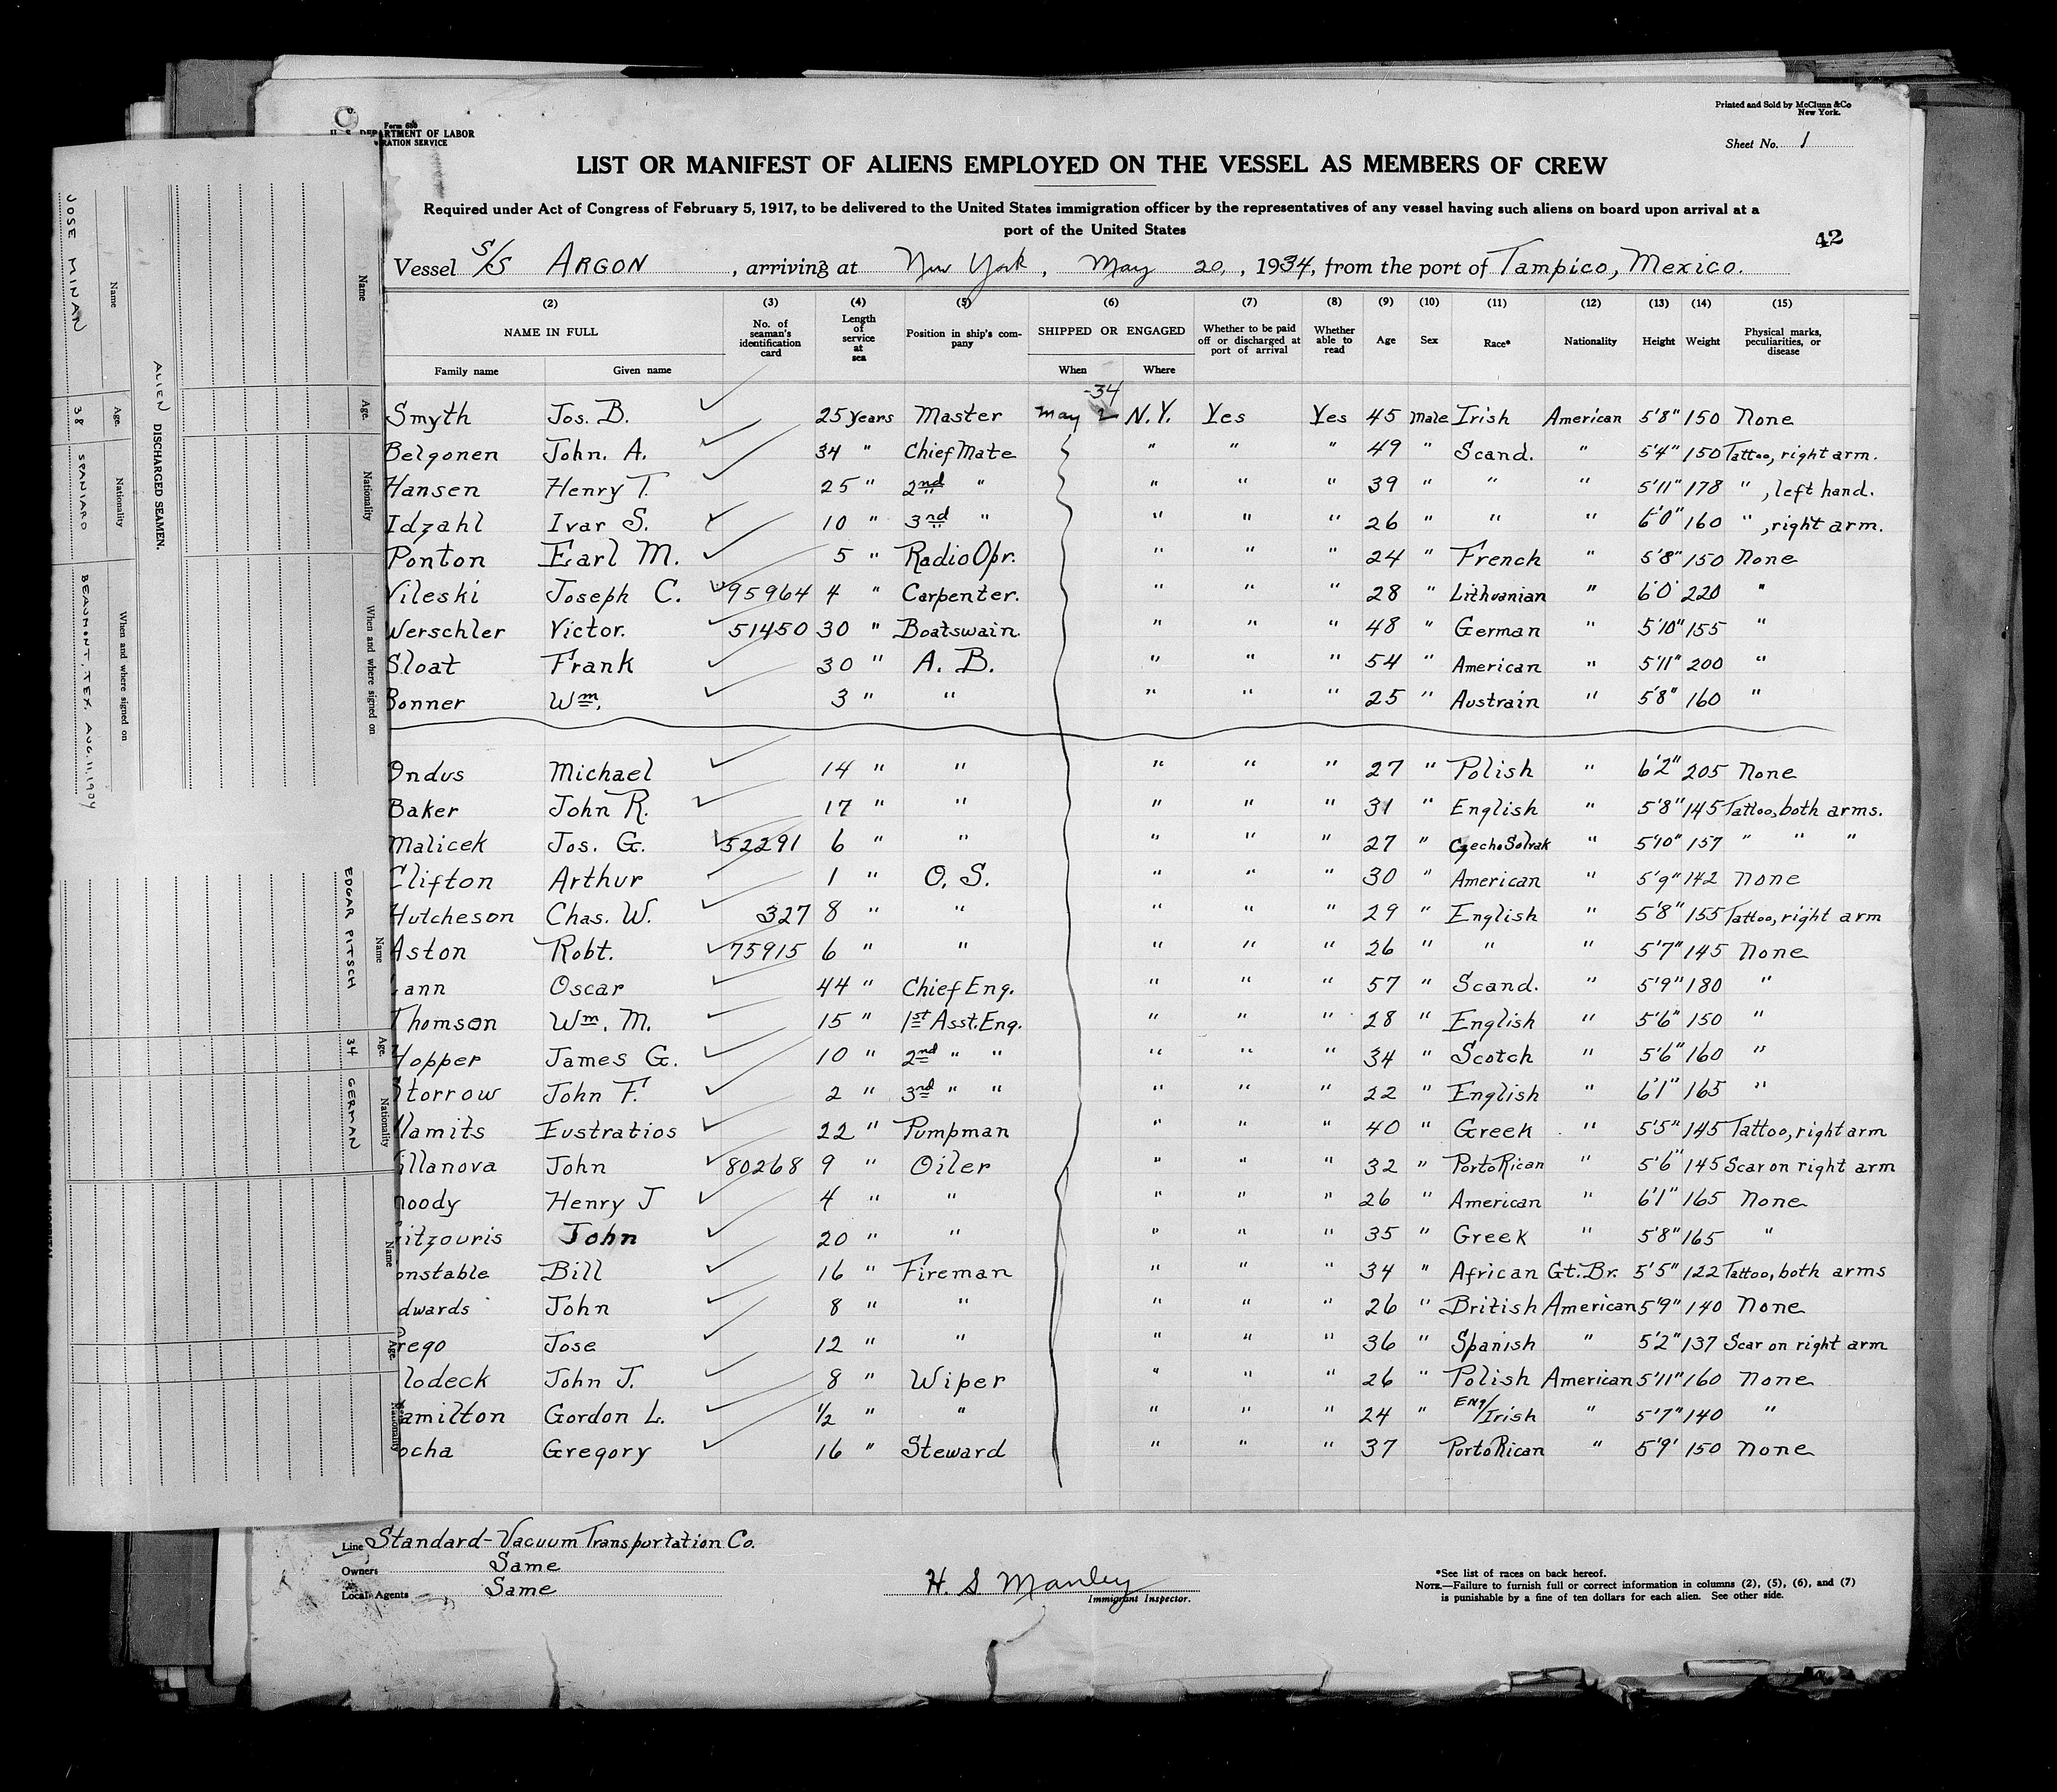 Printed and Sold by McClunn & Co
New York.
Form 680
U. S. DEPARTMENT OF LABOR
RATION SERVICE
Sheet No. 1
LIST OR MANIFEST OF ALIENS EMPLOYED ON THE VESSEL AS MEMBERS OF CREW
Required under Act of Congress of February 5, 1917, to be delivered to the United States immigration officer by the representatives of any vessel having such aliens on board upon arrival at a
port of the United States
42
Vessel S/S ARGON, arriving at New York, May 20, 1934, from the port of Tampico, Mexico.
(2) (3) (4) (5) (6) (7) (8) (9) (10) (11) (12) (13) (14) (15)
NAME IN FULL No. of seaman's identification card Length of service at sea Position in ship's company SHIPPED OR ENGAGED Whether to be paid off or discharged at port of arrival Whether able to read Age Sex Race* Nationality Height Weight Physical marks, peculiarities, or disease
Family name Given name When Where
-34
Smyth Jos. B. 25 years Master May 2 N.Y. Yes Yes 45 Male Irish American 5'8" 150 None
Belgonen John. A. 34 " Chief Mate " " " 49 " Scand. " 5'4" 150 Tattoo, right arm.
Hansen Henry T. 25 " 2nd " " " " 39 " " " 5'11" 178 " , left hand.
Idzahl Ivar S. 10 " 3nd " " " " 26 " " " 6'0" 160 " , right arm.
Ponton Earl M. 5 " Radio Opr. " " " 24 " French " 5'8" 150 None
Vileski Joseph C. 95964 4 " Carpenter. " " " 28 " Lithuanian " 6'0' 220 "
Werschler Victor. 51450 30 " Boatswain. " " " 48 " German " 5'10" 155 "
Sloat Frank 30 " A. B. " " " 54 " American " 5'11" 200 "
Bonner Wm. 3 " " " " " 25 " Austrain " 5'8" 160 "
Ondus Michael 14 " " " " " 27 " Polish " 6'2" 205 None
Baker John R. 17 " " " " " 31 " English " 5'8" 145 Tattoo, both arms.
Malicek Jos. G. 52291 6 " " " " " 27 " Czecho Solvak " 5'10" 157 " " "
Clifton Arthur 1 " O. S. " " " 30 " American " 5'9" 142 None
Hutcheson Chas. W. 327 8 " " " " " 29 " English " 5'8" 155 Tattoo, right arm
Aston Robt. 75915 6 " " " " 26 " " " 5'7" 145 None
ann Oscar 44 " Chief Eng. " " " 57 " Scand. " 5'9" 180 "
Thomson Wm. M. 15 " 1st Asst. Eng. " " " 28 " English " 5'6" 150 "
Hopper James G. 10 " 2nd " " " " " 34 " Scotch " 5'6" 160 "
Storrow John F. 2 " 3nd " " " " " 22 " English " 6'1" 165 "
lamits Eustratios 22 " Pumpman " " " 40 " Greek " 5'5" 145 Tattoo, right arm
illanova John 80268 9 " Oiler " " " 32 " Porto Rican " 5'6" 145 Scar on right arm
oody Henry J 4 " " " " " 26 " American " 6'1" 165 None
itzouris John 20 " " " " " 35 " Greek " 5'8" 165 "
onstable Bill 16 " Fireman " " " 34 " African Gt. Br. 5'5" 122 Tattoo, both arms
dwards John 8 " " " " " 26 " British American 5'9" 140 None
rego Jose 12 " " " " " 36 " Spanish " 5'2" 137 Scar on right arm
lodeck John J. 8 " Wiper " " " 26 " Polish American 5'11" 160 None
amilton Gordon L. 1/2 " " " " " 24 " Eng/Irish " 5'7" 140 "
ocha Gregory 16 " Steward " " " 37 Porto Rican " 5'9' 150 None
Line Standard-Vacuum Transportation Co.
Owners Same
Local Agents Same
H. S Manley
Immigrant Inspector.
*See list of races on back hereof.
NOTE.—Failure to furnish full or correct information in columns (2), (5), (6), and (7)
is punishable by a fine of ten dollars for each alien. See other side.
ALIEN DISCHARGED SEAMEN.
Name Age. Nationality When and where signed on
JOSE MINAN 38 SPANIARD BEAUMONT, TEX. AUG. 11, 1904
Name Age. Nationality When and where signed on
Name Age. Nationality
EDGAR PITSCH 34 GERMAN
Name Age. Nationality